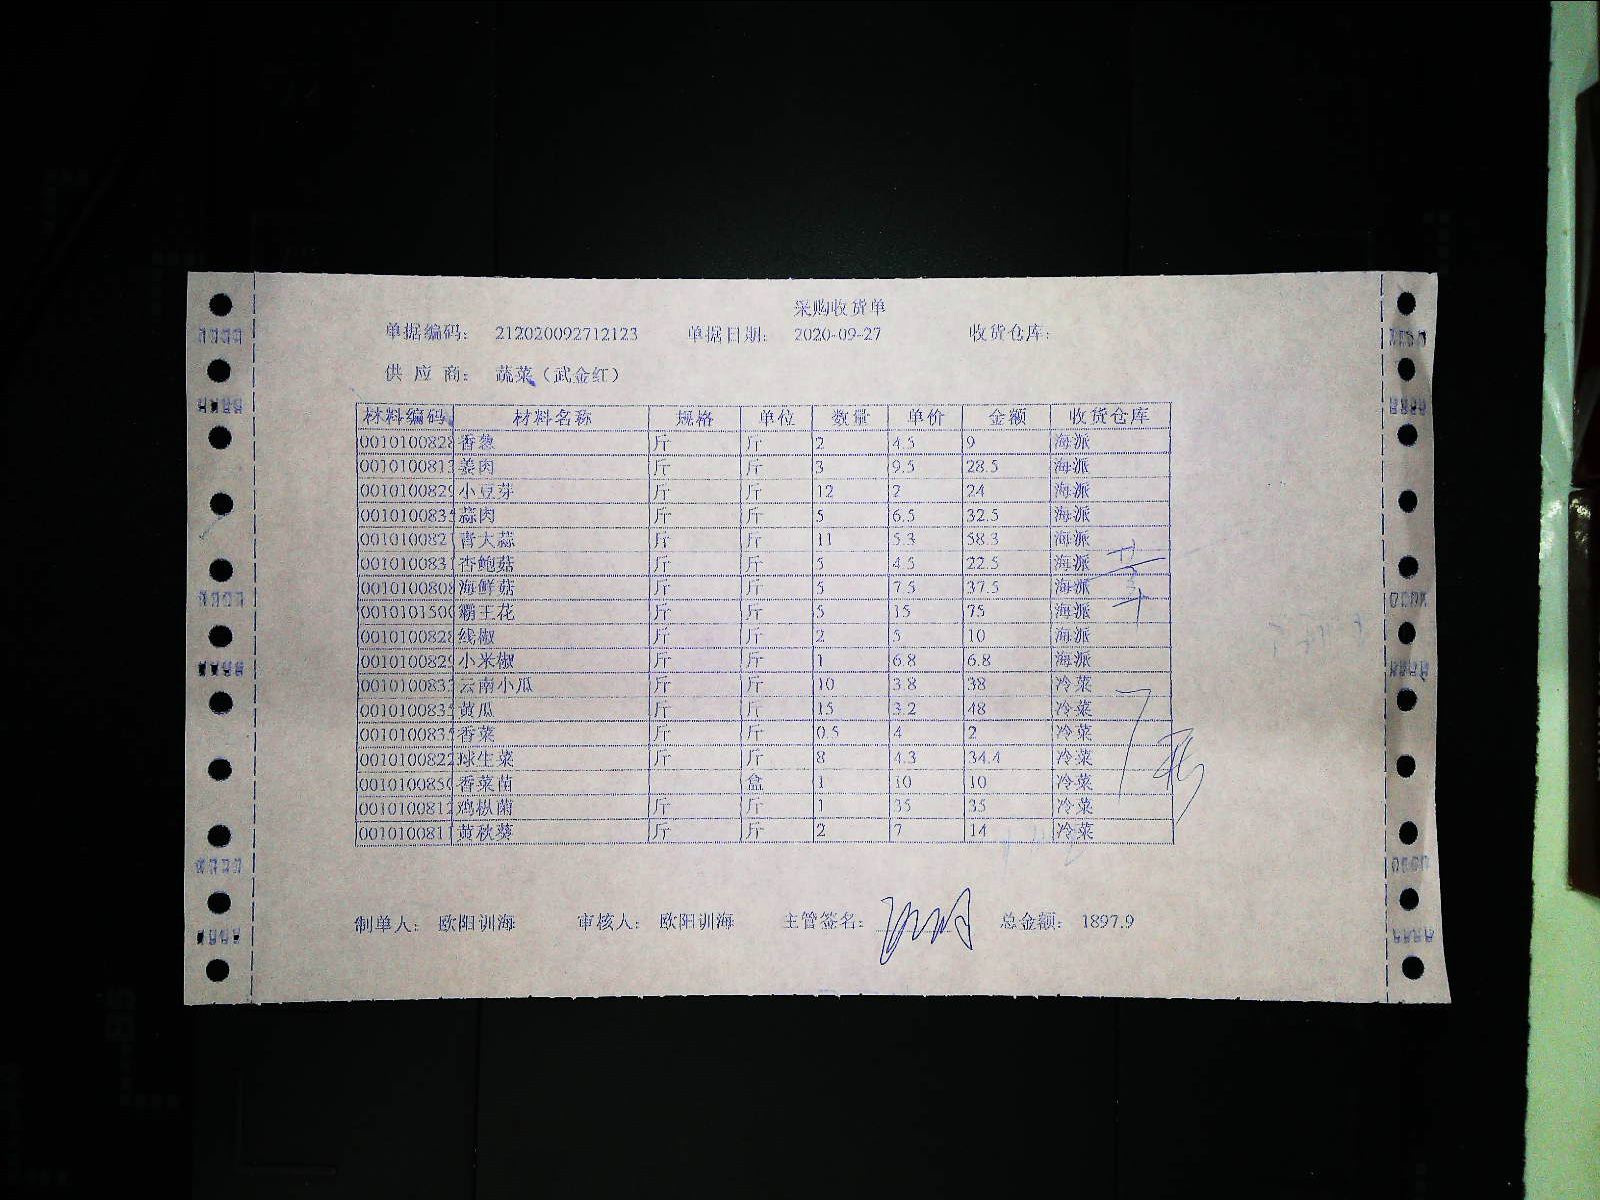 采购收货单
单据编码： 212020092712123 单据日期： 2020-09-27 收货仓库：
供 应 商： 蔬菜（武金红）
材料编码 材料名称 规格 单位 数量 单价 金额 收货仓库
0010100828 香葱 斤 斤 2 4.5 9 海派
0010100813 姜肉 斤 斤 3 9.5 28.5 海派
0010100829 小豆芽 斤 斤 12 2 24 海派
0010100835 蒜肉 斤 斤 5 6.5 32.5 海派
001010082 青大蒜 斤 斤 11 5.3 58.3 海派
001010083 杏鲍菇 斤 斤 5 4.5 22.5 海派
0010100808 海鲜菇 斤 斤 5 7.5 37.5 海派
0010101500 霸王花 斤 斤 5 15 75 海派
0010100828 线椒 斤 斤 2 5 10 海派
0010100829 小米椒 斤 斤 1 6.8 6.8 海派
0010100833 云南小瓜 斤 斤 10 3.8 38 冷菜
0010100835 黄瓜 斤 斤 15 3.2 48 冷菜
0010100835 香菜 斤 斤 0.5 4 2 冷菜
0010100822 球生菜 斤 斤 8 4.3 34.4 冷菜
0010100850 香菜苗 盒 1 10 10 冷菜
0010100812 鸡枞菌 斤 斤 1 35 35 冷菜
001010081 黄秋葵 斤 斤 2 7 14 冷菜
制单人： 欧阳训海 审核人： 欧阳训海 主管签名： 总金额： 1897.9